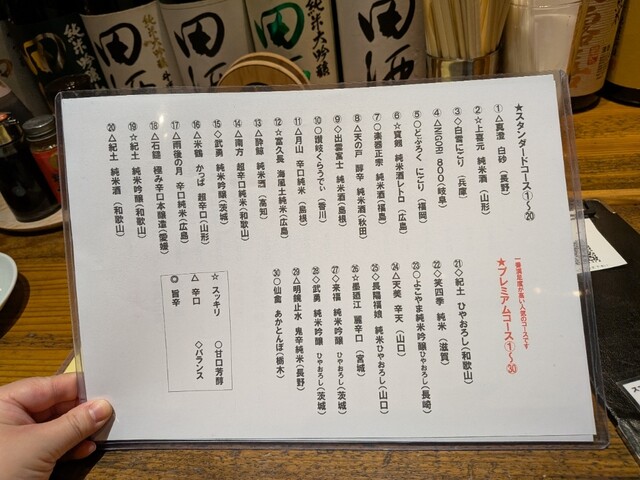 ★スタンダードコース①～⑳
①△真澄 白砂(長野)
②☆上喜元 純米酒(山形)
③◇白雪にごり(兵庫)
④△NIGORI 800(岐阜)
⑤○とぶろく にごり(福岡)
⑥☆寶剱 純米酒レトロ(広島)
⑦○楽器正宗 純米酒(福島)
⑧△天の戸 醇辛 純米酒(秋田)
⑨◇出雲富士 純米酒(島根)
⑩○讃岐くらうでぃ(香川)
⑪△月山 辛口純米(島根)
⑫☆富久長 海風土純米(広島)
⑬△酔鯨 純米酒(高知)
⑭△南方 超辛口純米(和歌山)
⑮◇武勇 純米吟醸(茨城)
⑯△米鶴 かっぱ 超辛口(山形)
⑰△雨後の月 辛口純米(広島)
⑱△石鎚 極み辛口本醸造(愛媛)
⑲☆紀土 純米吟醸(和歌山)
⑳△紀土 純米酒(和歌山)
一番満足度が高い人気のコースです
★プレミアムコース①～㉚
㉑◇紀土 ひやおろし(和歌山)
㉒◇笑四季 純米(滋賀)
㉓○よこやま純米吟醸ひやおろし(長崎)
㉔△天美 辛天(山口)
㉕◇長陽福娘 純米ひやおろし(山口)
㉖☆墨廼江 麗辛口(宮城)
㉗◇来福 純米吟醸 ひやおろし(茨城)
㉘◇武勇 純米吟醸 ひやおろし(茨城)
㉙△明鏡止水 鬼辛純米(長野)
㉚○仙禽 あかとんぼ(栃木)
☆ スッキリ ○甘口芳醇
△ 辛口 ◇バランス
◎ 旨辛
純米吟醸
田酒
田酒
純米大吟醸
田酒